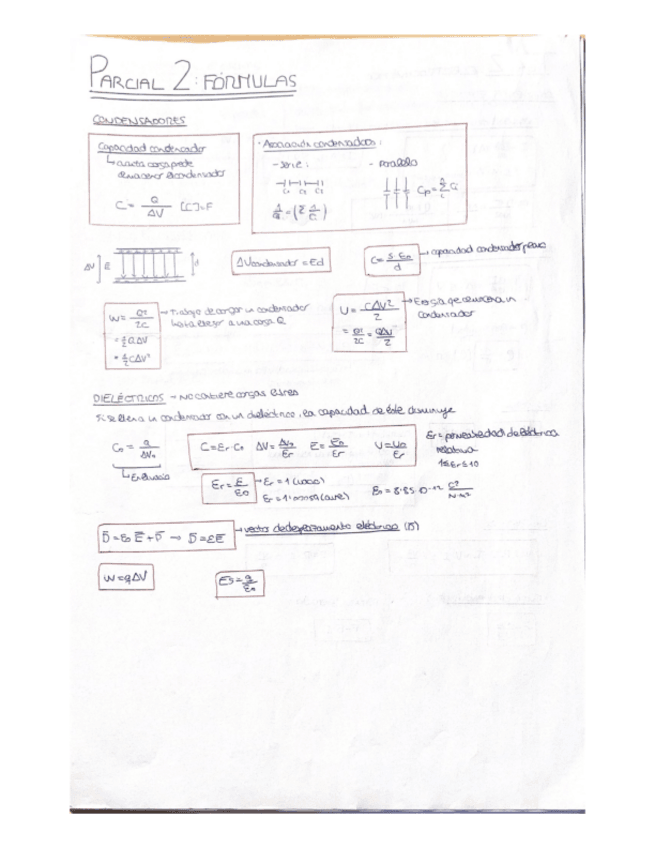 PARCIAL 2: FÓRMULAS
CONDENSADORES
Capacidad condensador
↳ cuánta carga puede
almacenar el condensador
C = Q/ΔV [C]=F
· Asociación condensadores:
- Serie:
C₁ C₂ C₃
- Paralelo
Cp = Σ Ci
ΔV
E
d
ΔVcondensador = Ed
C = S·ε₀/d → capacidad condensador plano
W = Q²/2C → Trabajo de cargar un condensador
hasta llegar a una carga Q
= ½ QΔV
= ½ CΔV²
U = CΔV²/2 → Energía que almacena un
condensador
= Q²/2C = QΔV/2
DIELÉCTRICOS - No contiene cargas libres
Si se llena un condensador con un dieléctrico, la capacidad de éste disminuye
C₀ = Q/ΔV₀
↳ En el vacío
C = εr·C₀ ΔV = ΔV₀/εr E = E₀/εr U = U₀/εr
εr = permeabilidad dieléctrica
relativa
1 ≤ εr ≤ 10
εr = ε/ε₀ → εr = 1 (vacío)
(aire)
ε₀ = 8.85·10⁻¹² C²/N·m²
D̄ = ε₀ Ē + P̄ → D̄ = εĒ → vector desplazamiento eléctrico (D̄)
W = qΔV
ES = q/ε₀